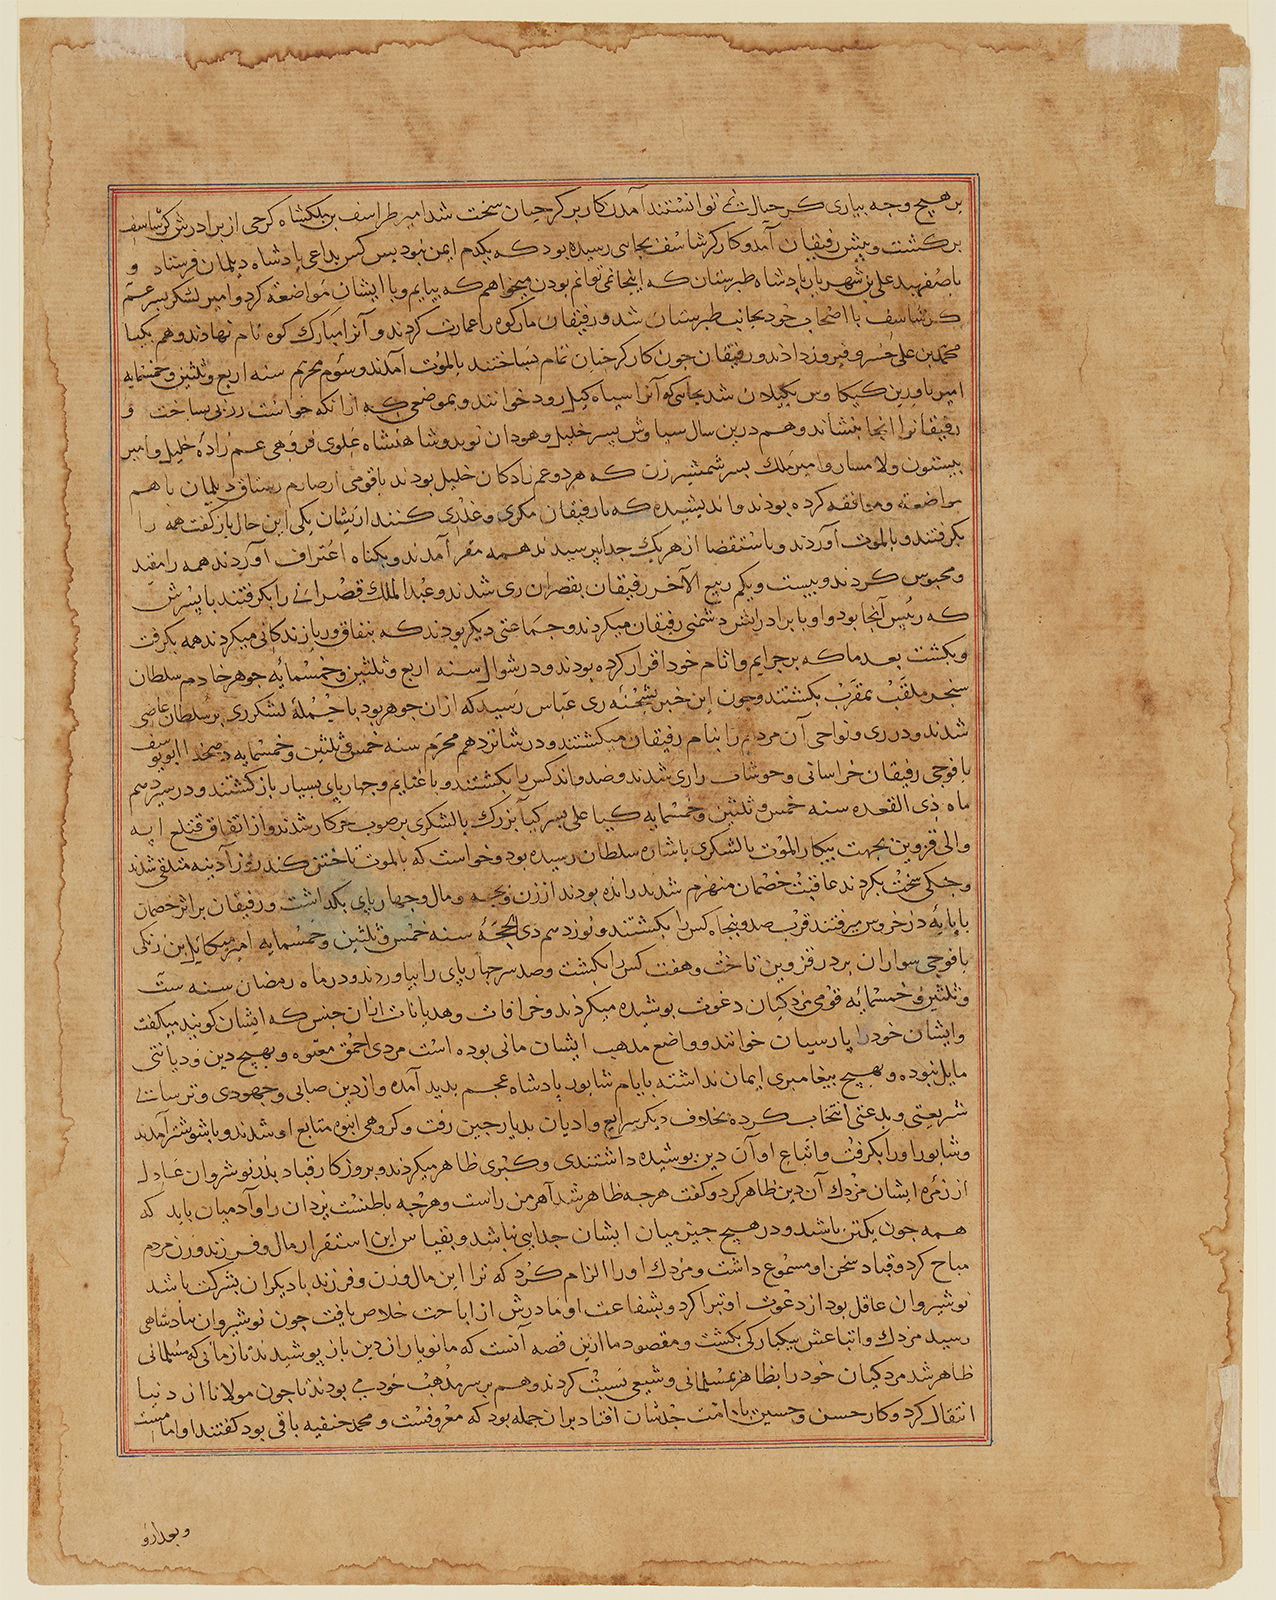 بر هیچ وجه بیاری کرجیان نمی توانستند آمدن کار بر کرجیان سخت شد امیر طراسف بن ملکشاه کرجی از برادرش کرشاسف
برکشت و پیش رفیقان آمد و کار کرشاسف بجایی رسیده بود که یکدم ایمن نبود پس کس بداعی پادشاه دیلمان فرستاد و
باصفهبد علی بن شهریار پادشاه طبرستان که اینجا نمی توانم بودن میخواهم که بیایم و با ایشان مواضعه کرد و امیر لشکر پسر عم
کرشاسف با اصحاب خود بجانب طبرستان شد و رفیقان مارکوه را عمارت کردند و آنرا مبارک کوه نام نهادند و هم بکیا
محمد بن علی خسرو فیروز دادند و رفیقان جون کار کرجیان تمام بساختند بالموت آمدند و سوم محرم سنه اربع و ثلثین و خمسمایه
امیر ناور بن کیکاوس بکیلان شد بجایی کو آنرا سیاه کیل رود خوانند و بموضعی که آنرا نکه خواست رزنی بساخت و
رفیقانرا آنجا بنشاند و هم درین سال سیاوش پسر خلیل وهودان نوبد و شاهنشاه علوی فروهی عم زاده خلیل و امیر
بیستون ولامسار و امیر ملک پسر شمشیرزن که هر دو عم زادکان خلیل بودند با قومی از صارم رستاق دیلمان با هم
مواضعه و موافقه کرده بودند و اندیشیده که با رفیقان مکری و غدری کنند ازیشان یکی این حال باز کفت همه را
بکرفتند و بالموت آوردند و باستقضا از هر یک جدا پرسیدند همه مقر آمدند و بکناه اعتراف آوردند همه را مقید
و محبوس کردند و بیست و یکم ربیع الآخر رفیقان بقصران ری شدند و عبدالملک قصرانی را بکرفتند با پسرش
که رئیس آنجا بود و او با برادرانش دشمنی رفیقان میکردند و جماعتی دیکر بودند که بنفاق ورپا زندکانی میکردند همه بکرفت
و بکشت بعد ما که بر جرایم و اثام خود اقرار کرده بودند و در شوال سنه اربع و ثلثین و خمسمایه جوهر خادم سلطان
سنجر ملقب بمقرب بکشتند و جون این خبر بشحنه ری عباس رسید که از ان جوهر بود با جمله لشکر ری بر سلطان عاصی
شدند و در ری و نواحی آن مردم را بنام رفیقان میکشتند و در شانزدهم محرم سنه خمس و ثلثین و خمسمایه دهخدا ابو یوسف
با فوجی رفیقان خراسانی و خوشاف را ری شدند و صد و اند کس را بکشتند و با غنایم و جهار پای بسیار باز کشتند و در سیزدهم
ماه ذی القعده سنه خمس و ثلثین و خمسمایه کیا علی پسر کیا بزرک با لشکری بر صوب خرکار شدند و از اتفاق قتلع ابه
والی قزوین بجهت پیکار الموت با لشکری باشاره سلطان رسیده بود و خواست که بالموت تاختن کند روز آدینه متلقی شدند
و جنکی سخت بکردند عاقبت خصمان منهزم شدند رانده بودند از زن و بجه و مال و جهار پای بکداشت و رفیقان بر اثر خصمان
با پایه دزخروس میرفتند قرب صد و پنجاه کس را بکشتند و نوزدهم ذی الحجه سنه خمس و ثلثین و خمسمایه امیر میکائیل بن زنکی
با فوجی سواران بر در قزوین تاخت و هفت کس را بکشت و صد سر جهار پای را بیاوردند و در ماه رمضان سنه ست
و ثلثین و خمسمایه قومی مزدکیان دعوت پوشیده میکردند و خرافات و هدیانات از ان جنس که ایشان کویند میکفت
و ایشان خود را پارسیان خوانند و واضع مذهب ایشان مانی بوده است مردی احمق معتوه و بهیچ دین و دیانتی
مایل نبوده و بهیچ پیغامبری ایمان نداشتند بایام شاپور پادشاه عجم بدید آمده و از دین صابی و جهودی و ترسائی
شریعتی و بدعتی انتخاب کرده بخلاف دیکر شرایع و ادیان بدیار جین رفت و کروهی انبوه متابع او شدند و باشوشتر آمدند
و شاپور او را بکرفت و اتباع او آن دین پوشیده داشتندی و کبری ظاهر میکردند و بروزکار قباد پذر نوشروان عادل
از زمره ایشان مزدک آن دین ظاهر کرد و کفت هرجه ظاهر شد آهرمن راست و هرجه باطنست یزدان را و آدمیان باید که
همه جون یکتن باشند و در هیچ جیز میان ایشان جدایی نباشد و بقیاس این استقرار مال و فرزند و زن مردم
مباح کرد و قباد سخن او مسموع داشت و مزدک او را الزام کرد که ترا این مال و زن و فرزند با دیکران بشرکت باشد
نوشیروان عاقل بود از دعوت او تبرا کرد و بشفاعت او مادرش از اباحت خلاص یافت جون نوشیروان بپادشاهی
رسید مزدک و اتباعش بیکبارکی بکشت و مقصود ما ازین قصه آنست که مانویان از دین باز پوشیدند تا زمانی که مسلمانی
ظاهر شد مزدکیان خود را بظاهر بمسلمانی و شیعی نسبت کردند و هم بر سر مذهب خود می بودند تا جون مولانا از دنیا
انتقال کرد و کار حسن و حسین با امت جدشان افتاد بران جمله بود که معروفست و محمد حنفیه باقی بود کفتند او امامست
و بعد ازو